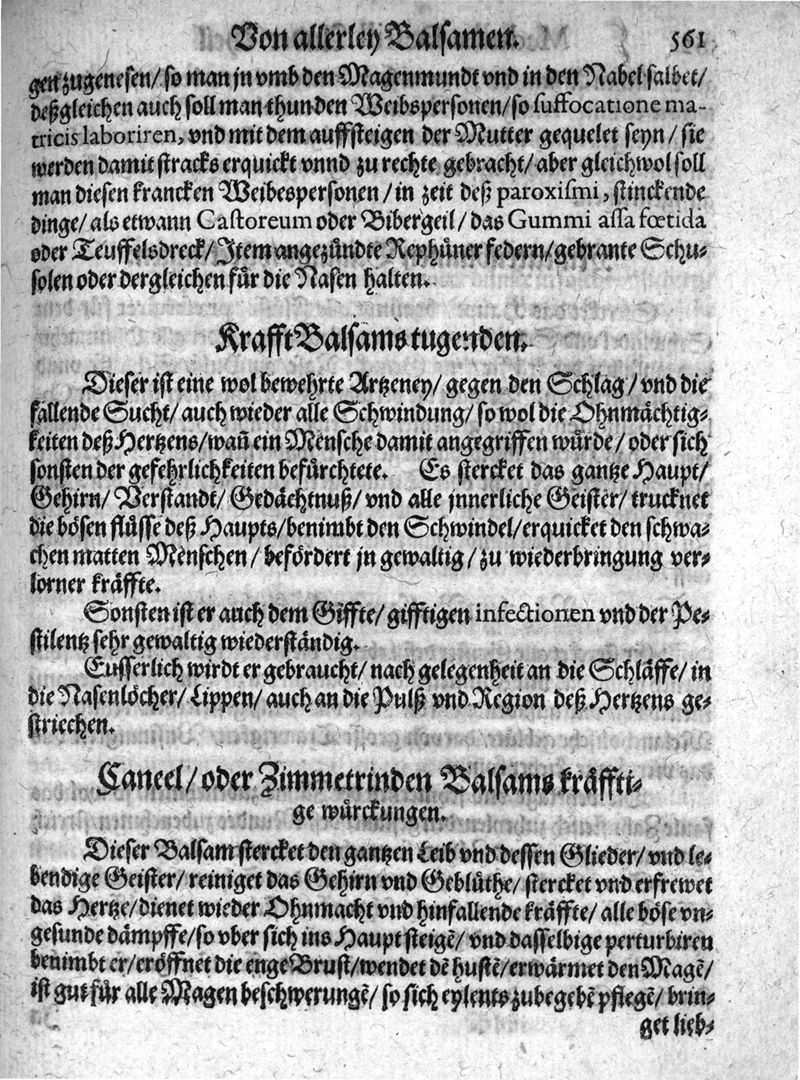 Von allerley Balsamen. 561
gen zugenesen/ so man jn vmb den Magenmundt vnd in den Nabel salbet/
deßgleichen auch soll man thun den Weibspersonen/ so suffocatione ma-
tricis laboriren, vnd mit dem auffsteigen der Mutter gequelet seyn/ sie
werden damit stracks erquickt vnnd zu rechte gebracht/ aber gleichwol soll
man diesen krancken Weibespersonen/ in zeit deß paroxismi, stinckende
dinge/ als etwann Castoreum oder Bibergeil/ das Gummi assa fœtida
oder Teuffelsdreck/ Jtem angezündte Rephüner federn/ gebrante Schu-
solen oder dergleichen für die Nasen halten.
Krafft Balsams tugenden.
Dieser ist eine wol bewehrte Artzeney/ gegen den Schlag/ vnd die
fallende Sucht/ auch wieder alle Schwindung/ so wol die Ohnmächtig-
keiten deß Hertzens/ wañ ein Mensche damit angegriffen würde/ oder sich
sonsten der gefehrlichkeiten befürchtete. Es stercket das gantze Haupt/
Gehirn/ Verstandt/ Gedächtnuß/ vnd alle jnnerliche Geister/ trucknet
die bösen flüsse deß Haupts/ benimbt den Schwindel/ erquicket den schwa-
chen matten Menschen/ befördert jn gewaltig/ zu wiederbringung ver-
lorner kräffte.
Sonsten ist er auch dem Giffte/ gifftigen infectionen vnd der Pe-
stilentz sehr gewaltig wiederständig.
Eusserlich wirdt er gebraucht/ nach gelegenheit an die Schläffe/ in
die Nasenlöcher/ Lippen/ auch an die Pulß vnd Region deß Hertzens ge-
striechen.
Caneel/ oder Zimmetrinden Balsams kräffti-
ge würckungen.
Dieser Balsam stercket den gantzen Leib vnd dessen Glieder/ vnd le-
bendige Geister/ reiniget das Gehirn vnd Geblüthe/ stercket vnd erfrewet
das Hertze/ dienet wieder Ohnmacht vnd hinfallende kräffte/ alle böse vn-
gesunde dämpffe/ so vber sich ins Haupt steigẽ/ vnd dasselbige perturbiren
benimbt er/ eröffnet die enge Brust/ wendet dẽ hustẽ/ erwärmet den Magẽ/
ist gut für alle Magen beschwerungẽ/ so sich eylents zubegebẽ pflegẽ/ brin-
get lieb-